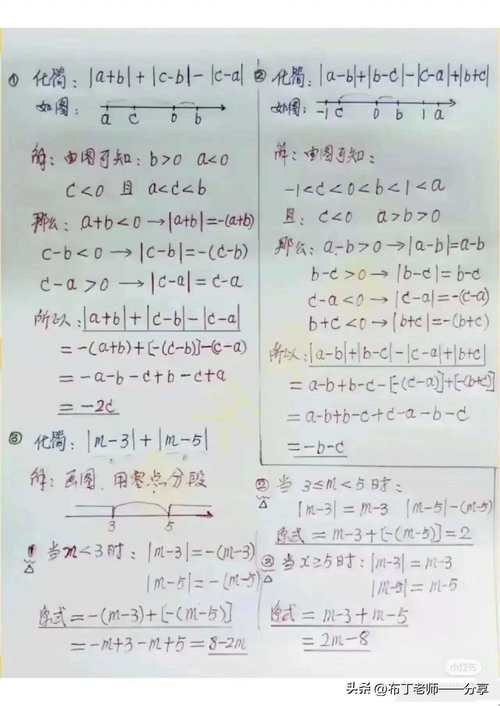 ① 化简: |a+b| + |c-b| - |c-a|
如图:
a c 0 b
解: 由图可知: b>0 a<0
c<0 且 a<c<b
那么: a+b<0 → |a+b|=-(a+b)
c-b<0 → |c-b|=-(c-b)
c-a>0 → |c-a|=c-a
所以: |a+b|+|c-b|-|c-a|
=-(a+b)+[-(c-b)]-(c-a)
=-a-b-c+b-c+a
=-2c
② 化简: |a-b|+|b-c|-|c-a|+|b+c|
如图:
-1 c 0 b 1 a
解: 由图可知:
-1<c<0<b<1<a
且: c<0 a>b>0
那么: a-b>0→|a-b|=a-b
b-c>0→|b-c|=b-c
c-a<0→|c-a|=-(c-a)
b+c<0→|b+c|=-(b+c)
所以: |a-b|+|b-c|-|c-a|+|b+c|
=a-b+b-c-[-(c-a)]+[-(b+c)]
=a-b+b-c+c-a-b-c
=-b-c
③ 化简: |m-3|+|m-5|
解: 画图、用零点分段
3 5
① 当m<3时: |m-3|=-(m-3)
|m-5|=-(m-5)
原式=-(m-3)+[-(m-5)]
=-m+3-m+5=8-2m
② 当 3≤m<5时:
|m-3|=m-3 |m-5|-(m-5)
原式=m-3+[-(m-5)]=2
③ 当x≥5时: |m-3|=m-3
|m-5|=m-5
原式=m-3+m-5
=2m-8
小红书
头条 @布丁老师——分享